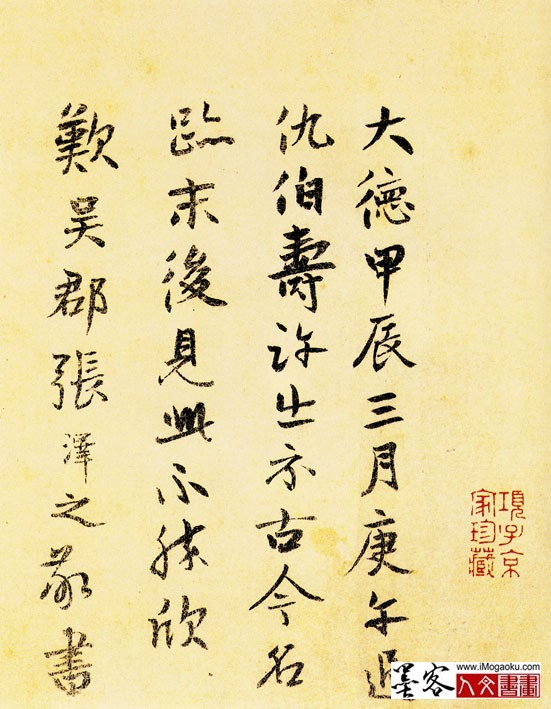 大德甲辰三月庚午過
仇伯壽許出示古今名
跡末後見此不勝欣
歎吳郡張澤之敬書
項子京
家珍藏
墨客
www.iMogaoku.com
人文書畫